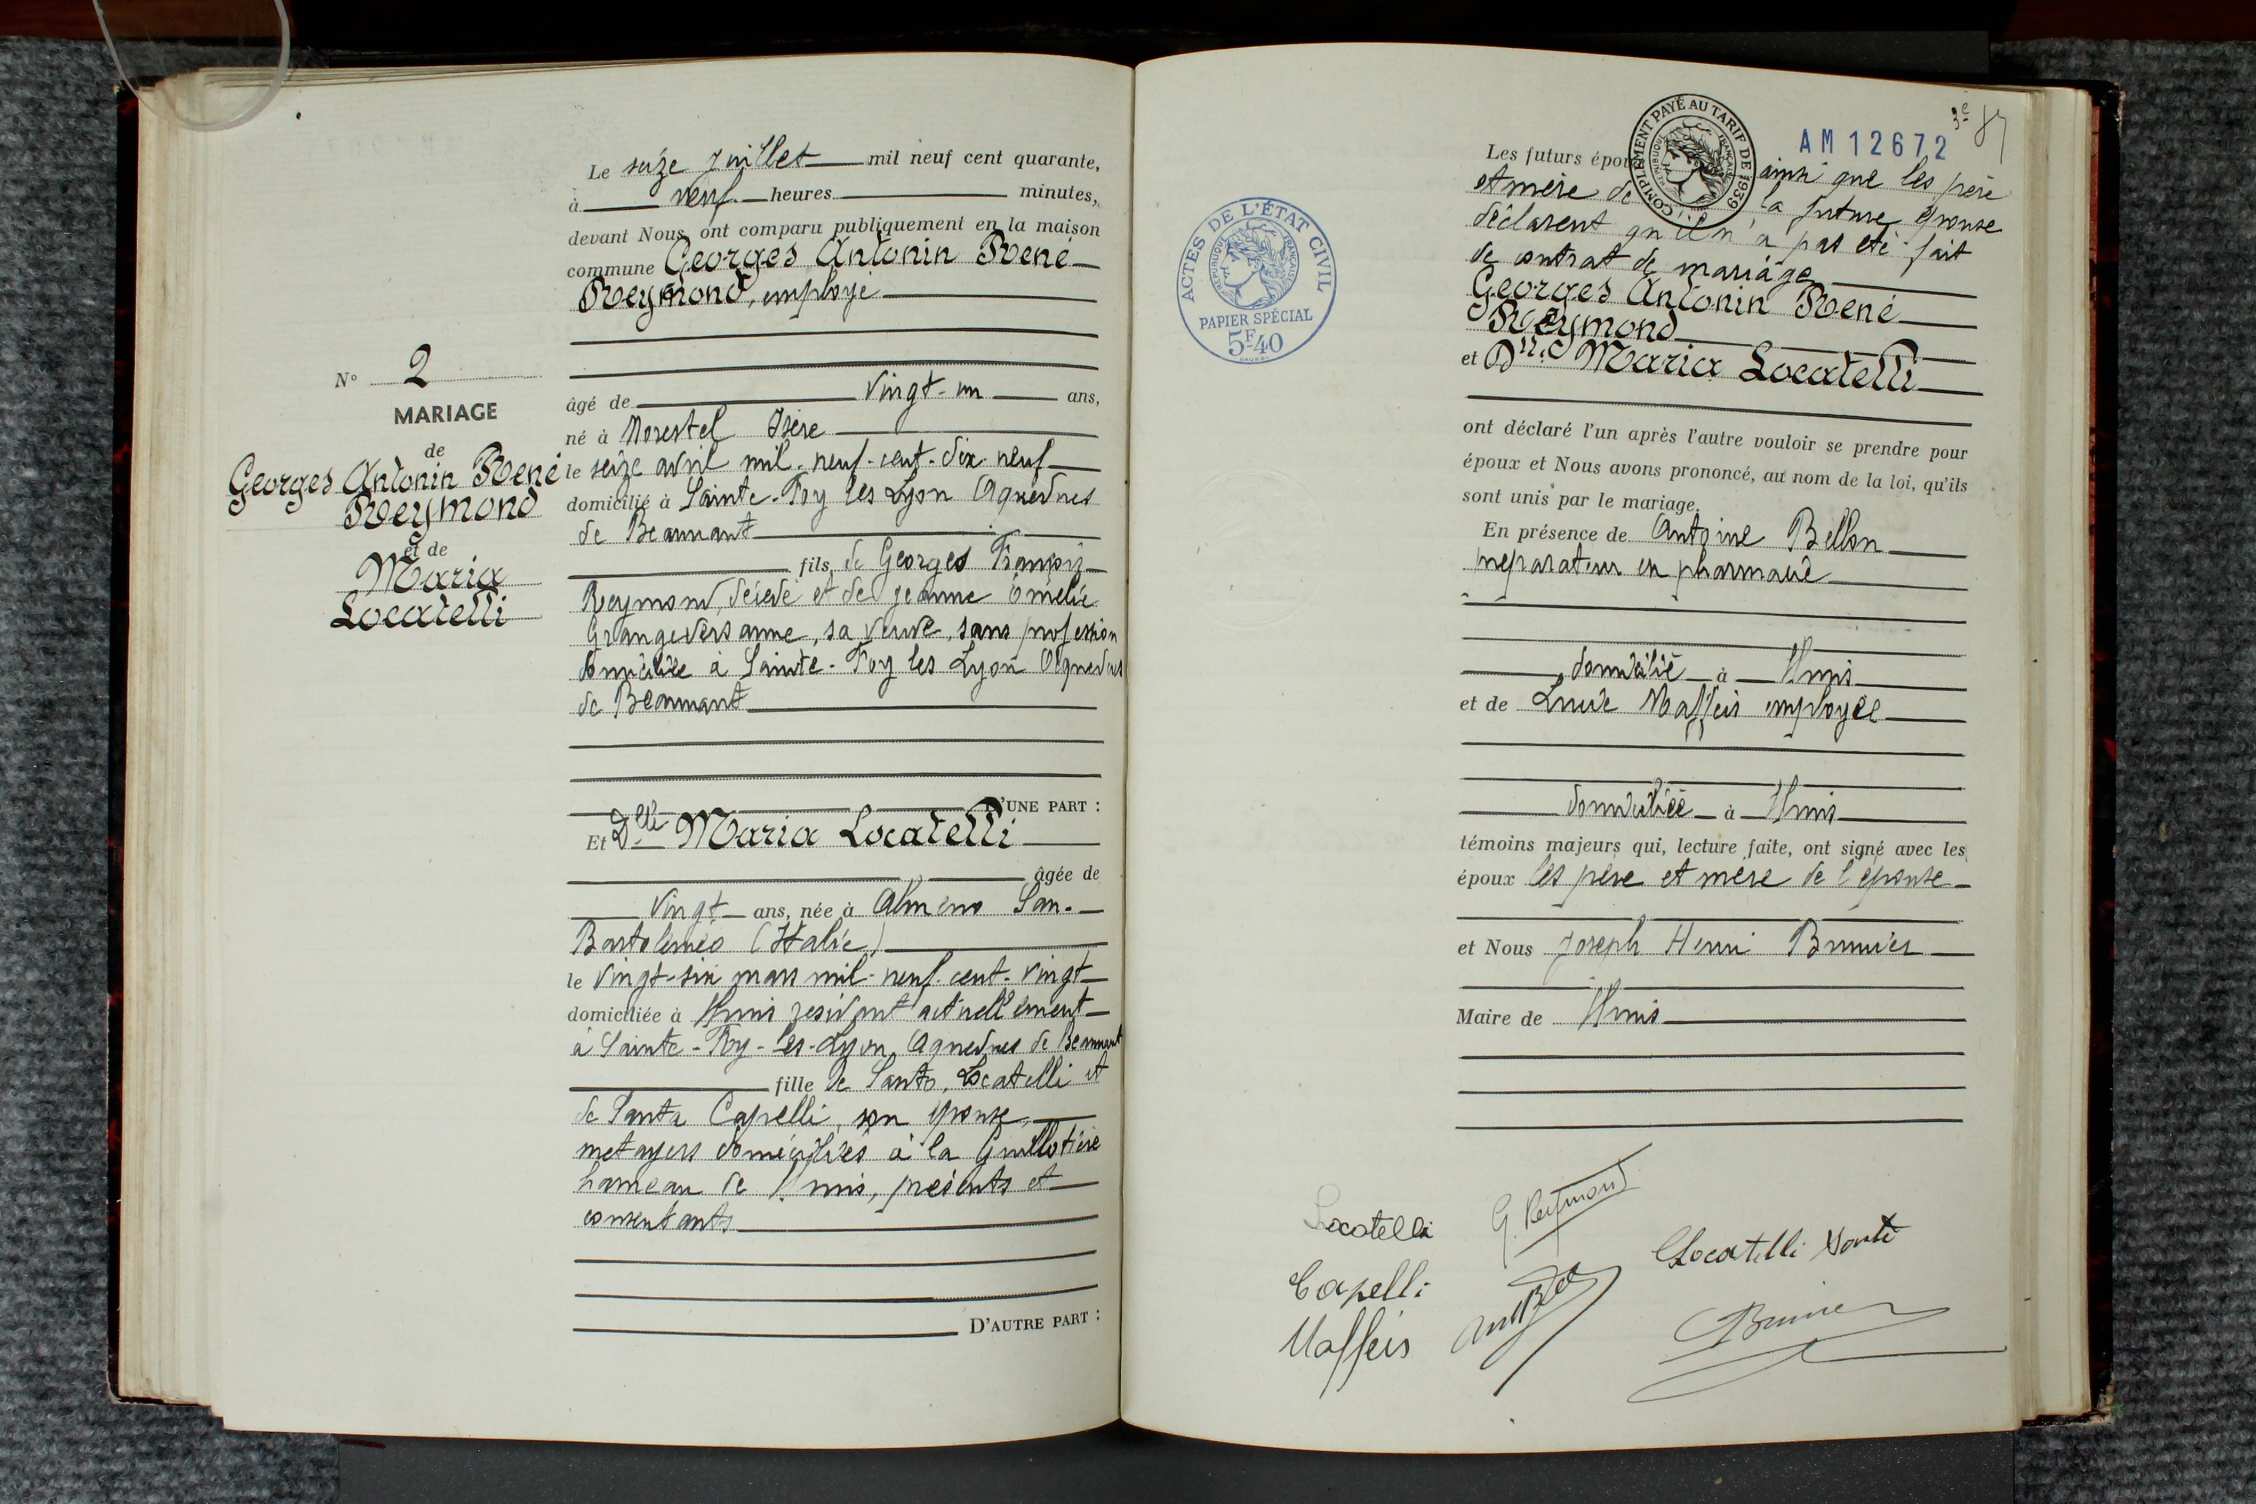 Le seize Juillet mil neuf cent quarante,
à neuf heures minutes,
devant Nous ont comparu publiquement en la maison
commune Georges Antonin René
Reymond, employé
N° 2
MARIAGE
de
Georges Antonin René
Reymond
et de
Maria
Locatelli
âgé de vingt-un ans,
né à Morestel Isère
le seize avril mil-neuf-cent-dix-neuf
domicilié à Sainte-Foy les Lyon Aqueducs
de Beaunant
fils de Georges François
Reymond, décédé et de Jeanne Émélie
Grangeversanne, sa veuve, sans profession
domiciliée à Sainte-Foy les Lyon Aqueducs
de Beaunant
D'UNE PART :
Et Delle Maria Locatelli
âgée de
vingt ans, née à Almeno San-
Bartoléméo (Italie)
le vingt-six mars mil-neuf-cent-vingt
domiciliée à Himis résidant actuellement
à Sainte-Foy-les-Lyon Aqueducs de Beaunant
fille de Santo Locatelli et
de Santa Capelli, son épouse,
métayers domiciliés à la Guillotière
hameau de mis, présents et
consentants
D'AUTRE PART :
3e 87
AM 12672
COMPLÉMENT PAYÉ AU TARIF DE 1939
RÉPUBLIQUE FRANÇAISE
ACTES DE L'ÉTAT CIVIL
RÉPUBLIQUE FRANÇAISE
PAPIER SPÉCIAL
5F40
Les futurs épou ainsi que les père
et mère de la future épouse
déclarent qu'il n'a pas été fait
de contrat de mariage
Georges Antonin René
Reymond
et Dlle Maria Locatelli
ont déclaré l'un après l'autre vouloir se prendre pour
époux et Nous avons prononcé, au nom de la loi, qu'ils
sont unis par le mariage.
En présence de Antoine Bellon
préparateur en pharmacie
domicilié à
et de Lucie Maffeis employée
domiciliée à
témoins majeurs qui, lecture faite, ont signé avec les
époux les père et mère de l'épouse
et Nous Joseph Henri Brunier
Maire de
Locatelli G. Reymond
Locatelli Santo
Capelli
Maffeis Brunier